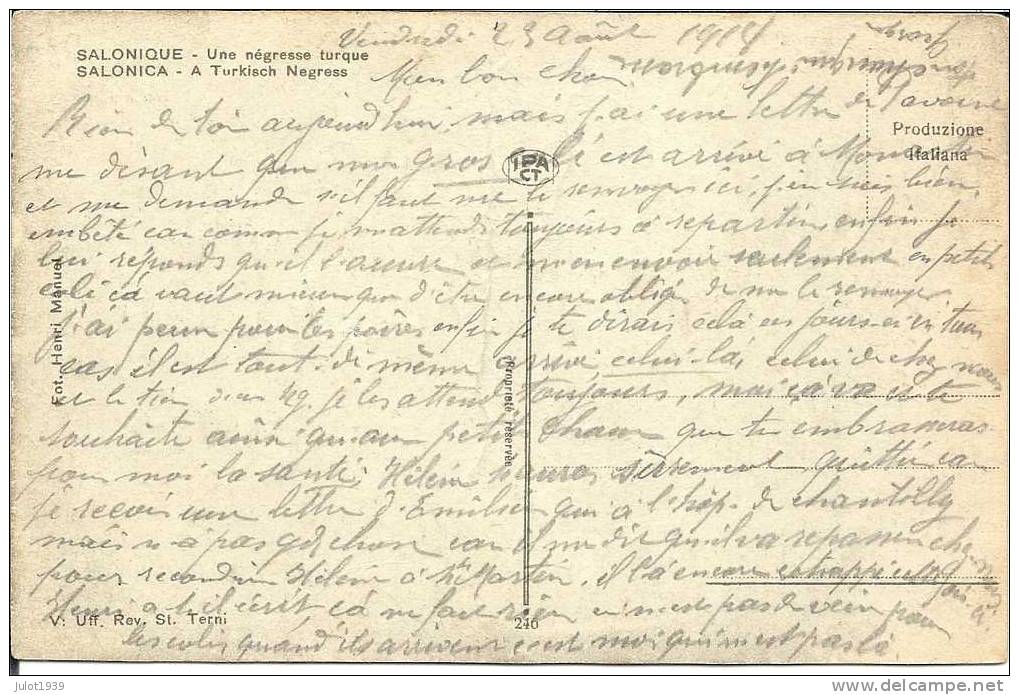 Vendredi 23 Août 1918
SALONIQUE - Une négresse turque
SALONICA - A Turkisch Negress
Mon bon chou
Rien de toi aujourd'hui, mais j'ai une lettre de
Produzione
Italiana
me disant que mon gros coli est arrivé à
IPA
CT
et me demande s'il faut me le renvoyer ici, j'en suis bien
embêté car comme je m'attends toujours à repartir enfin je
lui réponds qu'il l'ouvre et m'en envoie seulement en petits
coli ça vaut mieux que d'être encore obligé de me le renvoyer
j'ai peur pour les poires enfin je te dirais cela ces jours-ci en tous
cas il est tout-de même arrivé celui-là, celui de chez nous
et le tien d'un kg. je les attend toujours, moi ça va et te
souhaite ainsi qu'au petit chou que tu embrasseras
pour moi la santé, Hélène sûrement
je reçois une lettre d'Emilien qui à l'hop. de Chantilly
mais n'a pas gd chose car il me dit qu'il va repasser chez nous
pour reconduire Hélène à St Martin, il l'a encore échappé cette fois
Henri a-t-il écrit ça ne fait rien ce n'est pas de veine pour
les colis quand ils arrivent c'est moi qui n'est pas là.
Fot. Henri Manuel
Propriété réservée
V: Uff. Rev. St. Terni
246
julot1939
delcampe.net